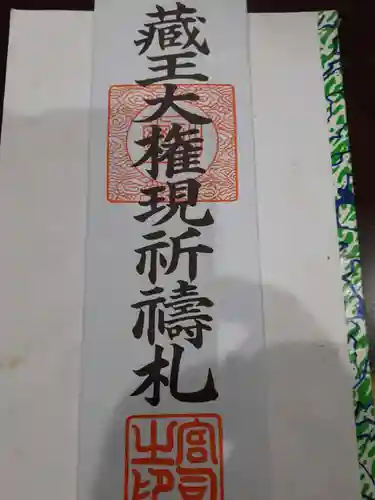 藏王大権現祈禱札
宮司之印